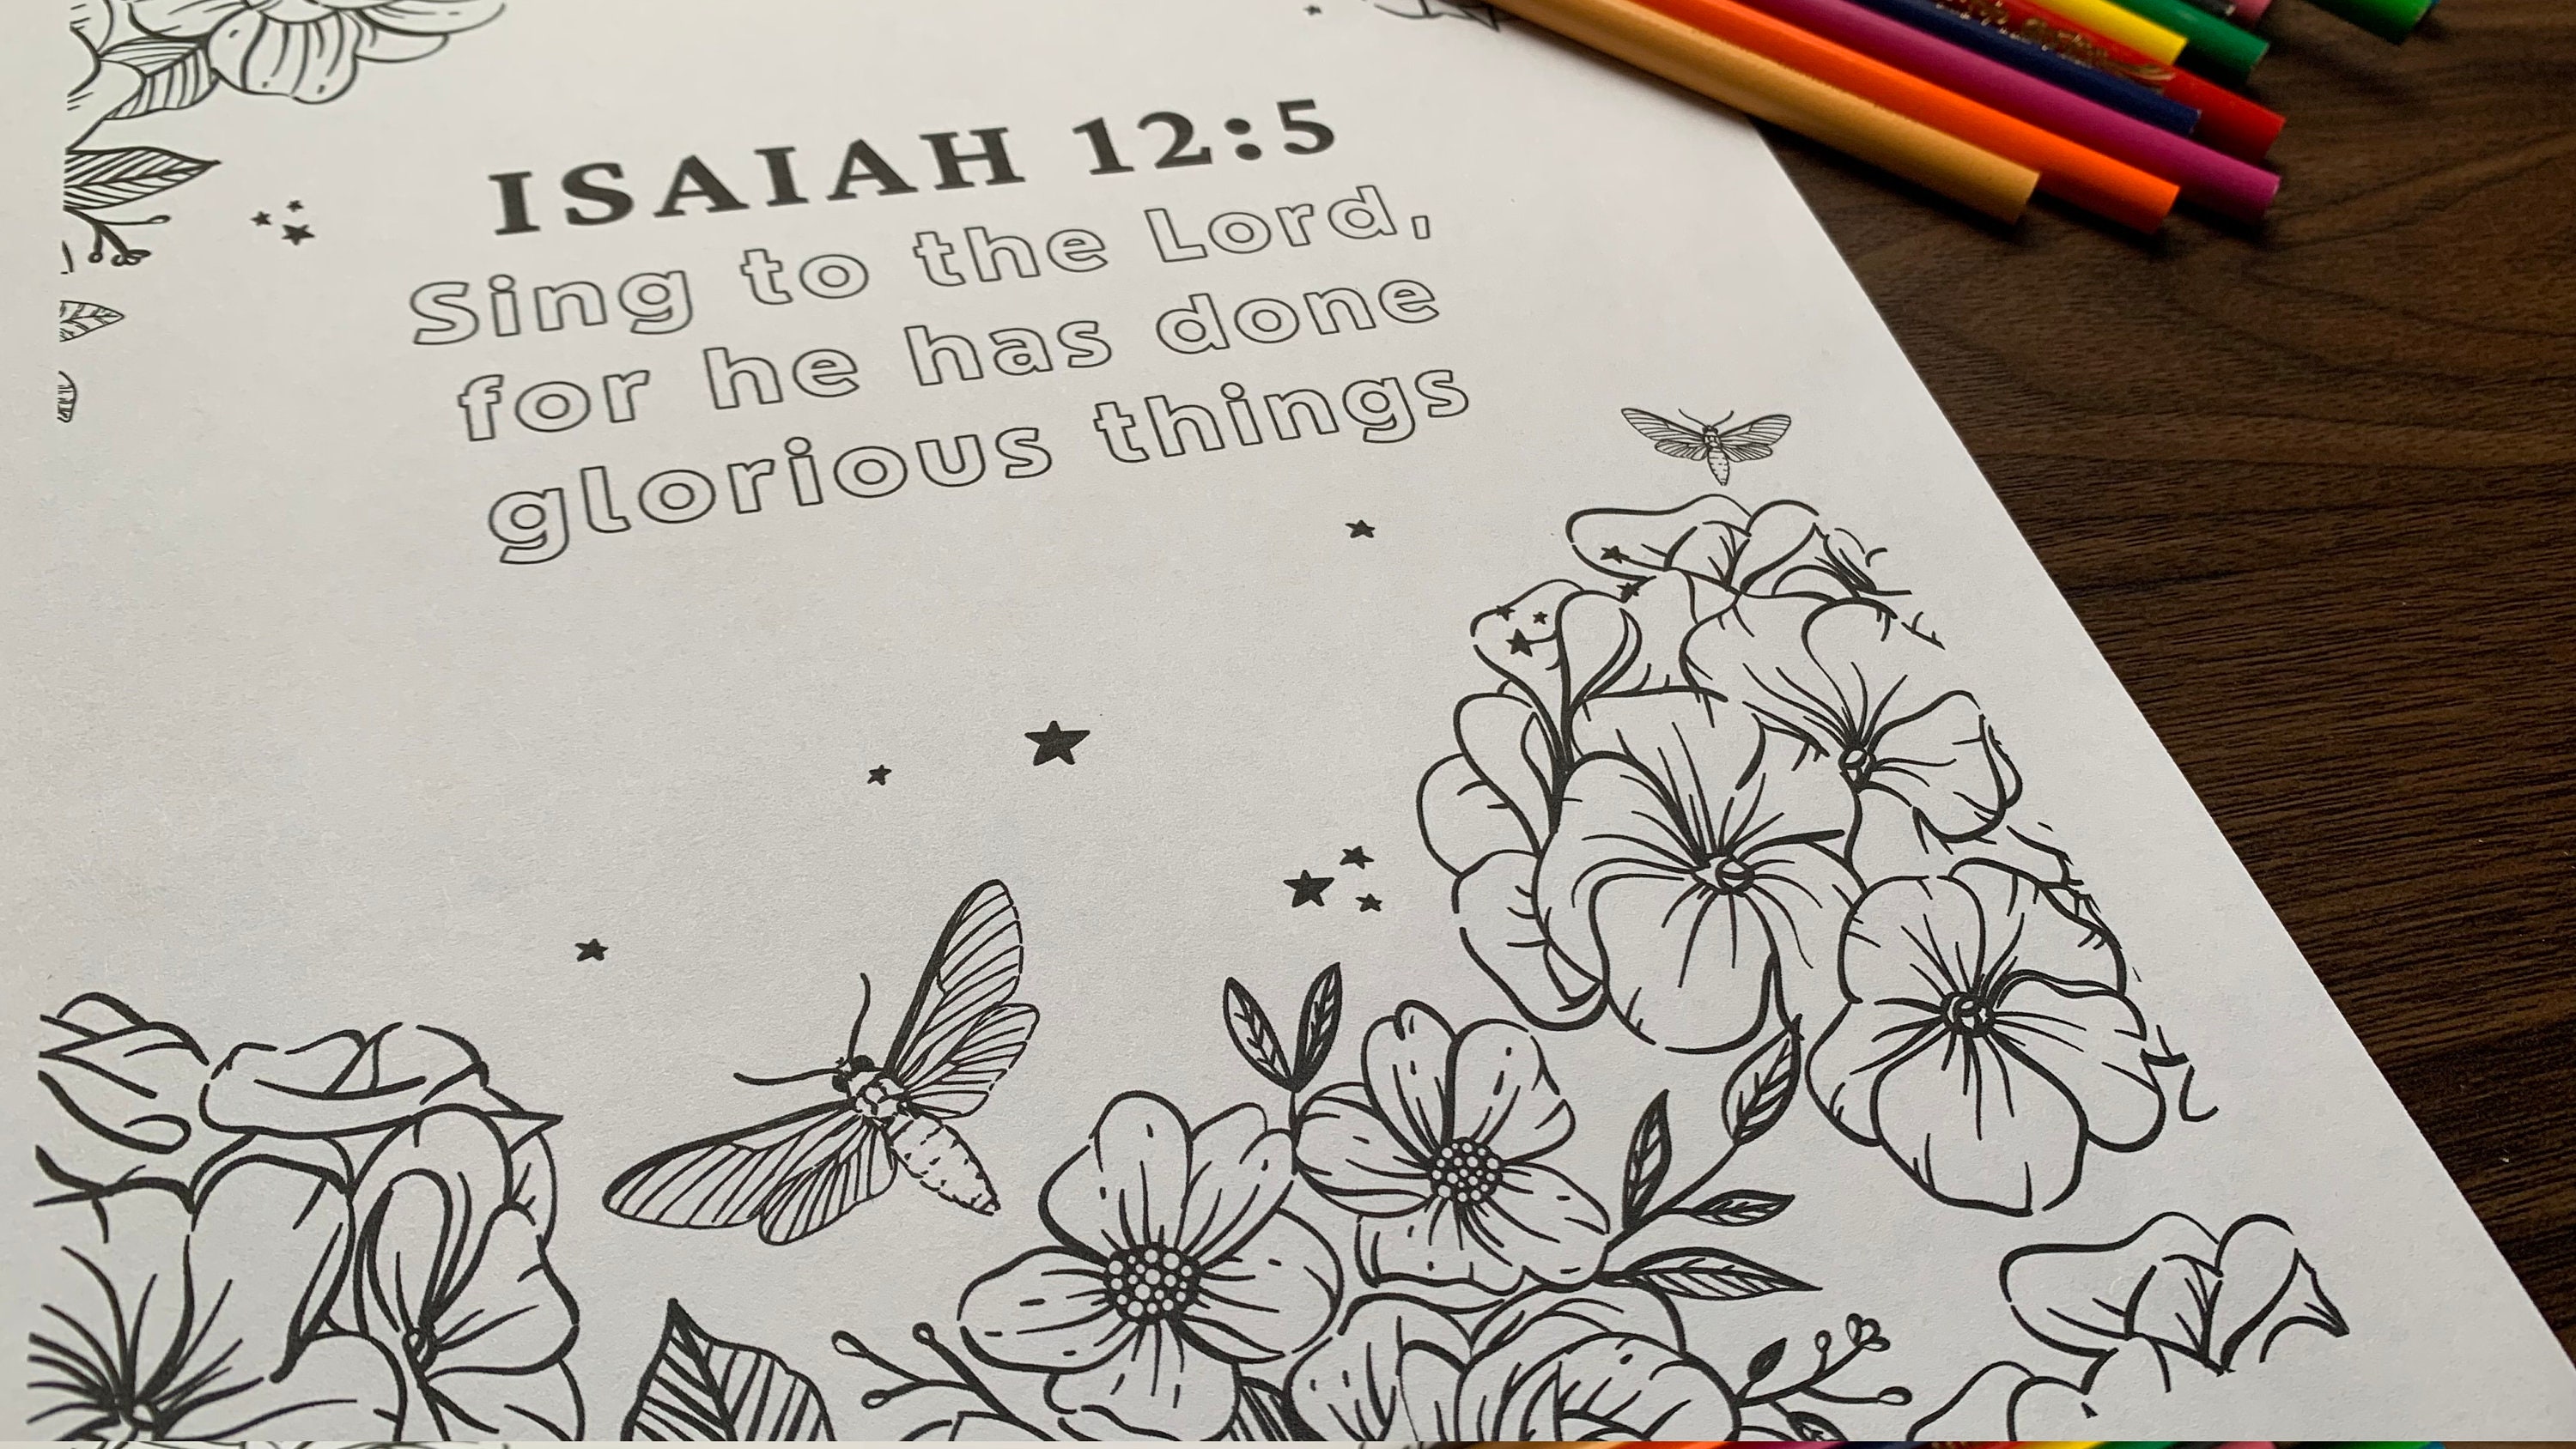 ISAIAH 12:5
Sing to the Lord,
for he has done
glorious things